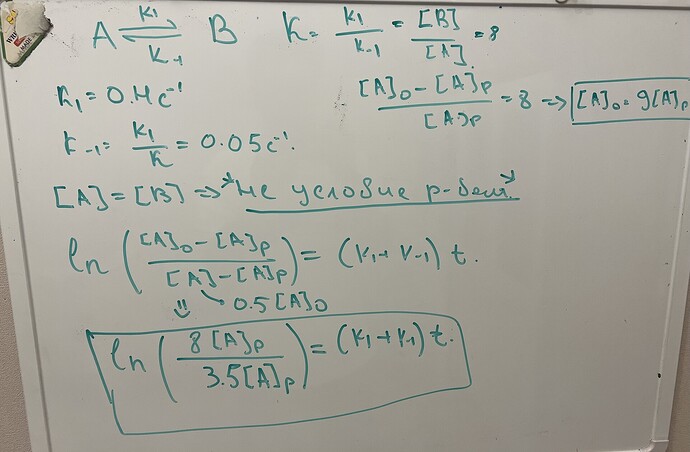 A ⇌ B K₁ K₋₁ K = k₁/k₋₁ = [B]/[A] = 8
k₁ = 0.4 c⁻¹
([A]₀ - [A]р)/[A]р = 8 => [A]₀ = 9[A]р
k₋₁ = k₁/K = 0.05 c⁻¹.
[A] = [B] => "не условие р-веси"
ln ([A]₀ - [A]р / [A] - [A]р) = (k₁ + k₋₁) t.
0.5[A]₀
ln (8[A]р / 3.5[A]р) = (k₁ + k₋₁) t.